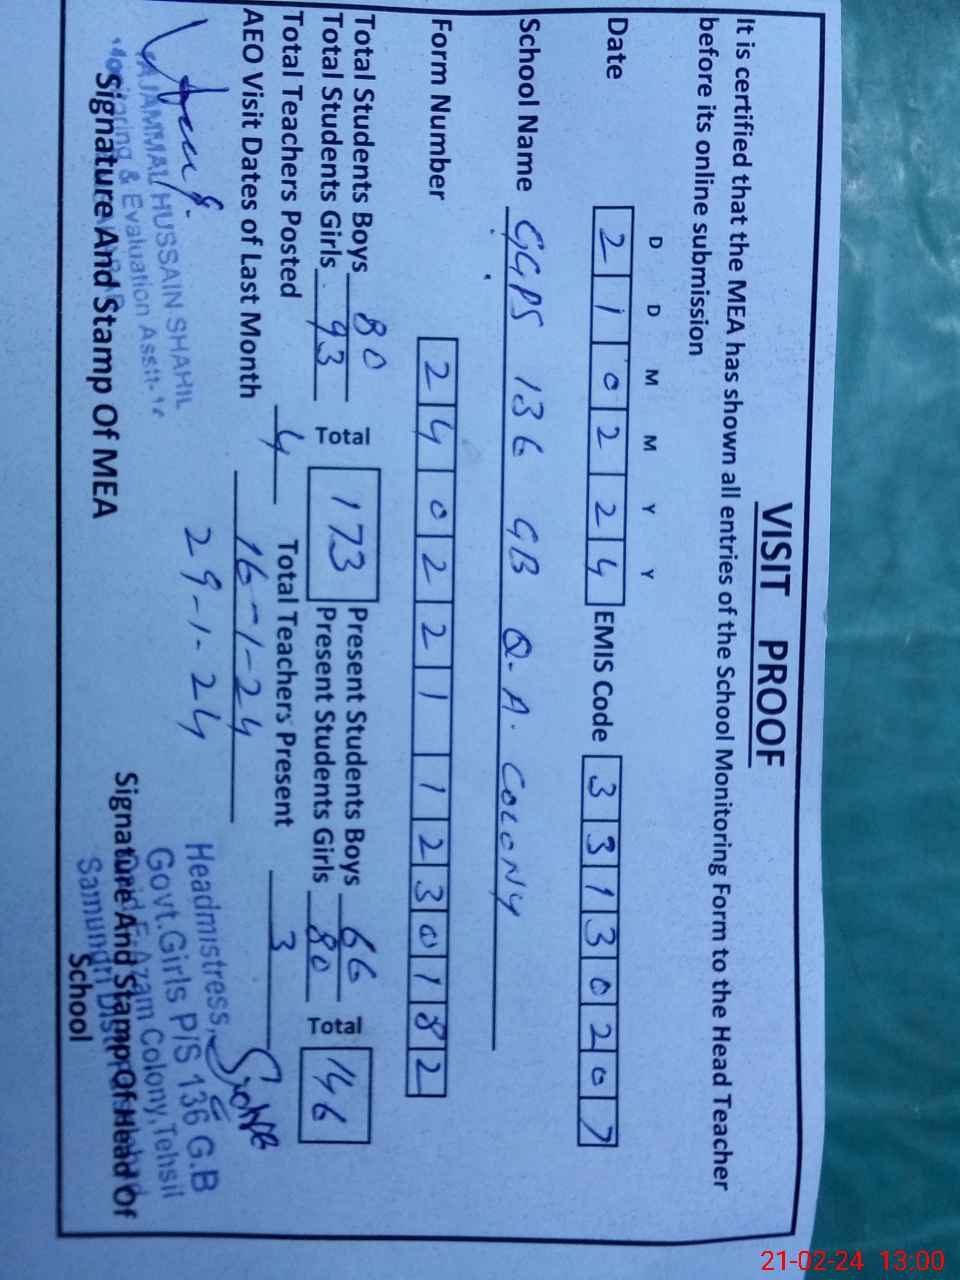 VISIT PROOF
It is certified that the MEA has shown all entries of the School Monitoring Form to the Head Teacher
before its online submission
D D M M Y Y
Date 2 1 0 2 2 4 EMIS Code 3 3 1 3 0 2 0 7
School Name GGPS 136 GB Q.A. COLONY
Form Number 2 4 0 2 2 1 1 2 3 0 1 8 2
Total Students Boys 80 Total 173 Present Students Boys 66 Total 146
Total Students Girls 93 Present Students Girls 80
Total Teachers Posted 4 Total Teachers Present 3
AEO Visit Dates of Last Month 16-1-24
29-1-24
HUSSAIN SHAHIL
& Evaluation Assit
Signature And Stamp Of MEA
Headmistress,
Govt.Girls P/S 136 G.B
Colony,Tehsil
Signature And Stamp Of Head Of
School
21-02-24 13:00